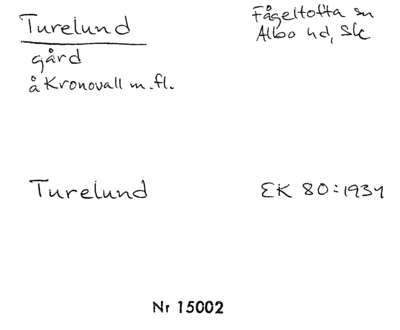 Turelund
Fågeltofta sn
Albo hd, Sk
gård
å Kronovall m.fl.
Turelund
EK 80:1934
Nr 15002